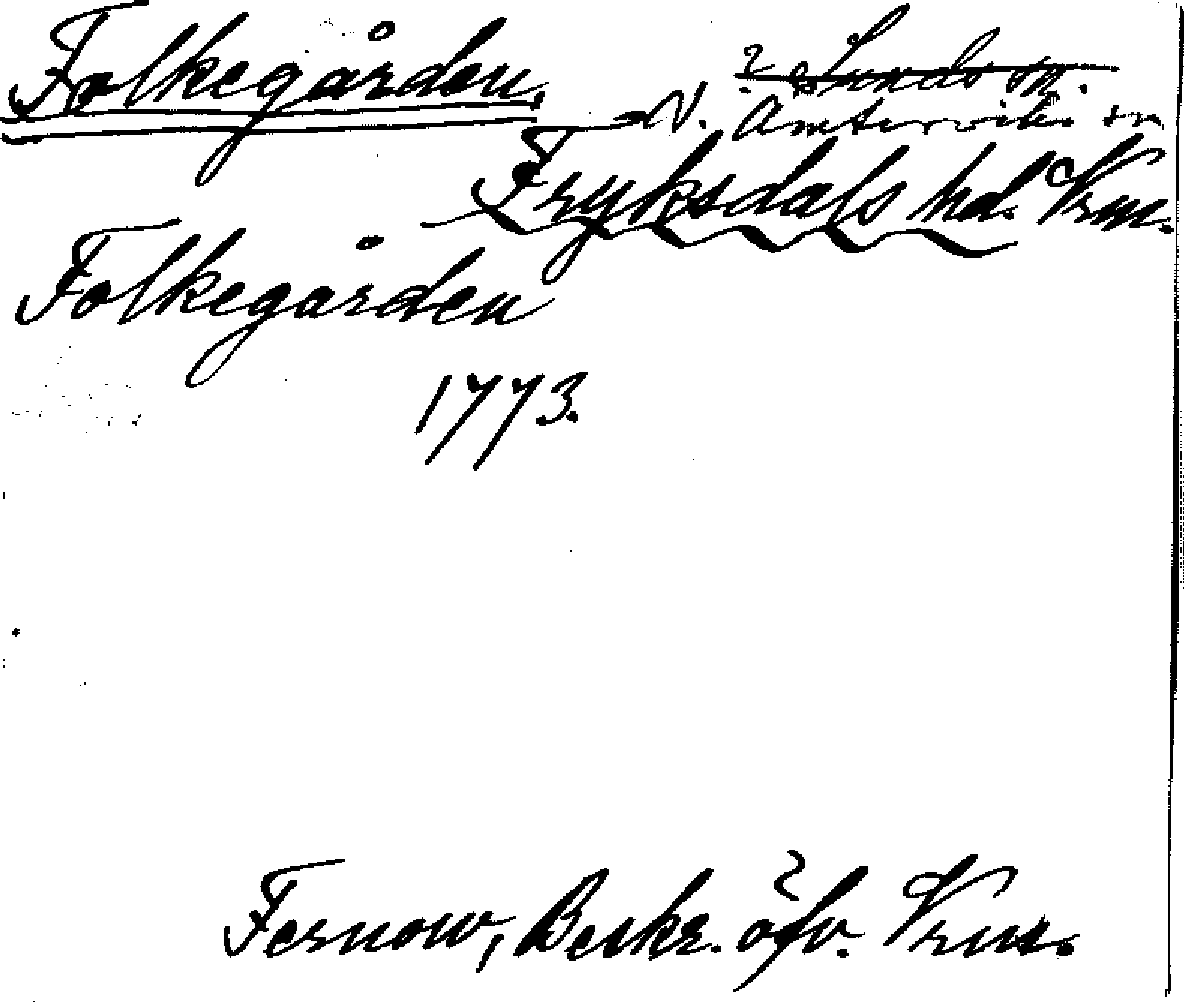 Folkegården,
? Sunds sn.
V. Ämterviks sn
Fryksdals hd. Vrm.
Folkegården
1773.
Fernow, Beskr. öfv. Vrm.